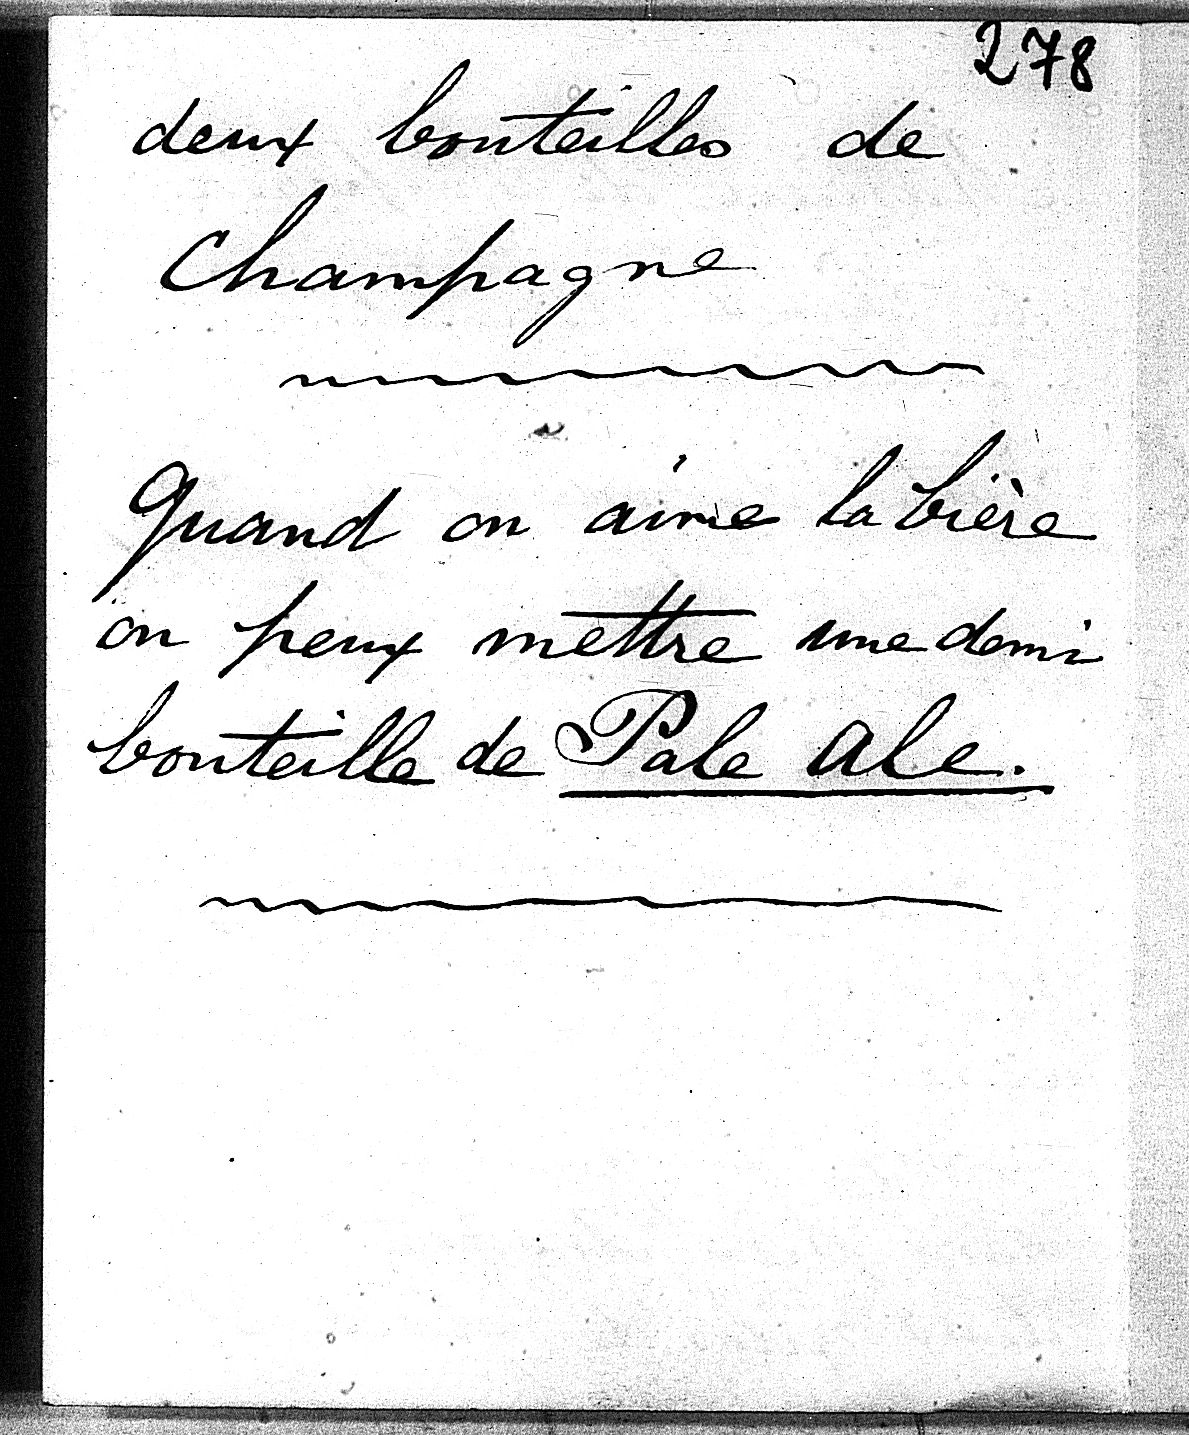 278
deux bouteilles de
Champagne
Quand on aime la bière
on peux mettre une demi
bouteille de Pale Ale.